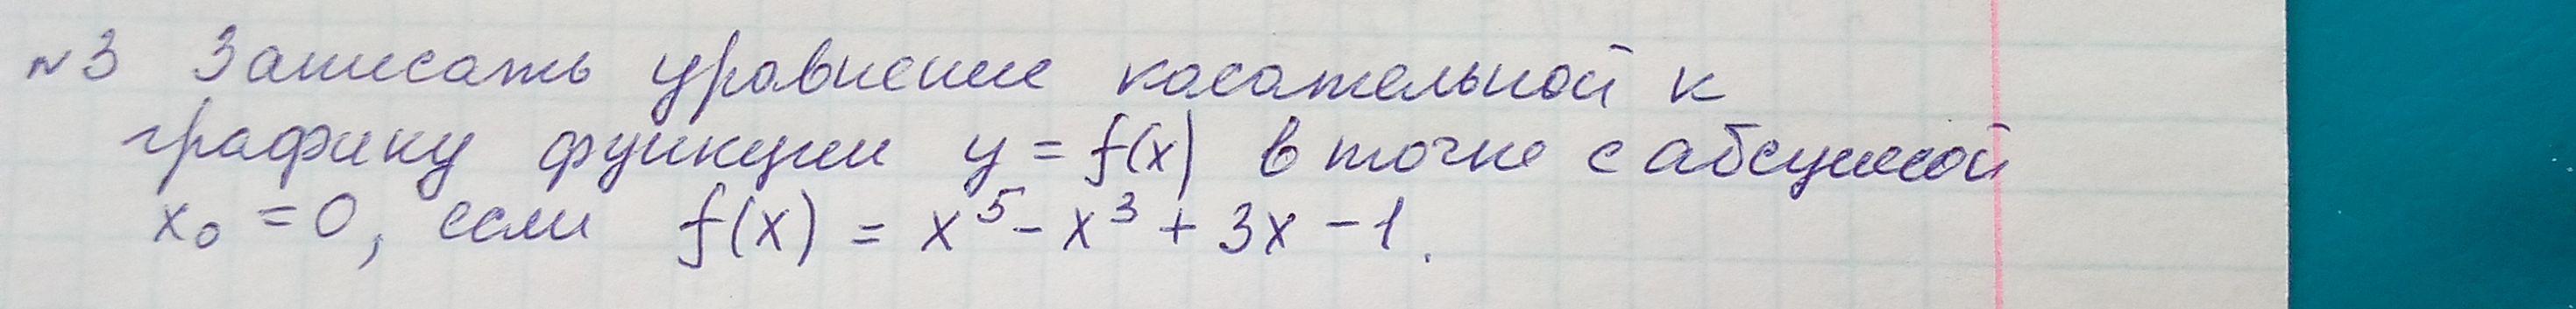 №3 Записать уравнение касательной к
графику функции y = f(x) в точке с абсциссой
x₀ = 0, если f(x) = x⁵ - x³ + 3x - 1.